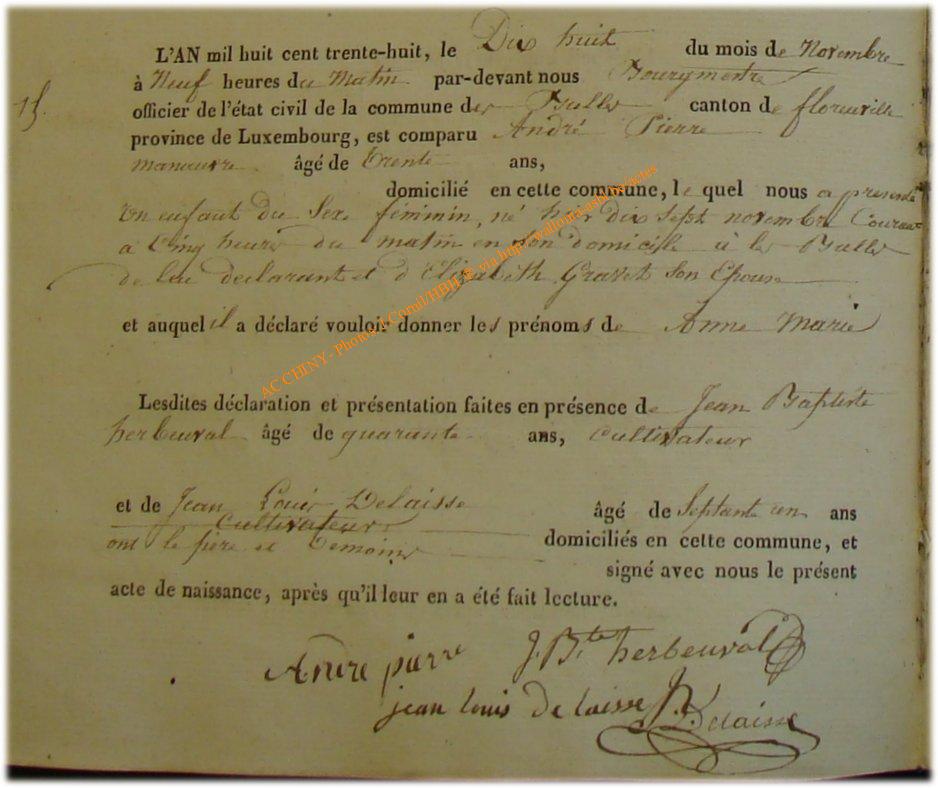 L'AN mil huit cent trente-huit, le Dix huit du mois de Novembre
à Neuf heures du Matin par-devant nous Bourgmestre
15.
officier de l'état civil de la commune des Bulles canton de florenville
province de Luxembourg, est comparu André Pierre
manœuvre âgé de trente ans,
domicilié en cette commune, le quel nous a presenté
un enfant du Sexe féminin, né hier dix sept novembre Courant
a Cinq heures du matin en son domicile à les Bulles
de lui declarant et d'Elizabeth Gravet son Epouse
et auquel il a déclaré vouloir donner les prénoms de Anne Marie
AC CHINY - Photos J. Cornil/HBH ® via http://wallonia-asbl.be/actes
Lesdites déclaration et présentation faites en présence de Jean Baptiste
herbeuval âgé de quarante ans, cultivateur
et de Jean Louis Delaisse âgé de Septante un ans
Cultivateur
ont le père et temoins domiciliés en cette commune, et
signé avec nous le présent
acte de naissance, après qu'il leur en a été fait lecture.
Andre pierre J. Bte herbeuval
jean louis De laisse Delaisse